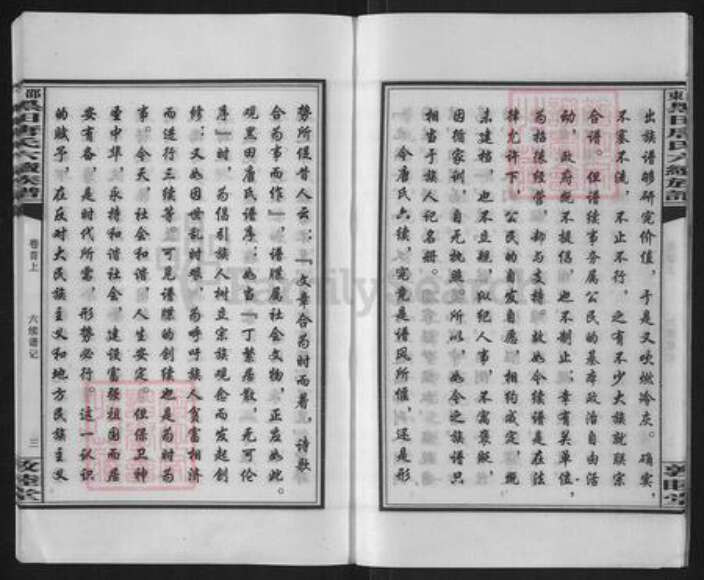 出族谱够研究价值，于是又吹燃冷灰。确实，
不塞不流，不止不行，之有不少大族就联宗
合谱。但谱续事务属公民的基本政治自由活
动，政府既不提倡，也不制止；幸有关单位，
为招揽经营，却与支持。故如今续谱是在法
律允许下，公民的自发自愿，相约成定，既
未建档，也不立规，似纪人事，不寓褒贬，
因循家训，自无执迹。所以，如今之族谱只
相当于族人记名册。
今唐氏六续，究竟是谱风所催，还是形
势所促昔人云：『文章合为时而著，诗歌
合为事而作』，谱牒属社会文物，正应如此。
观黑田唐氏谱序：如当『丁繁居散，无可伦
序』时，为倡引族人树立宗族观念而发起创
修；又如因世乱时艰，为呼吁族人贫富相济
而进行三续等。可见谱牒的创续也是为时为
事。今天，社会和谐，人生安定。但保卫神
圣中华，永持和谐社会，建设富强祖国而居
安有备，是时代所需，形势必行。这一认识
的赋予，在反对大民族主义和地方民族主义
卷首上
六续谱记
三